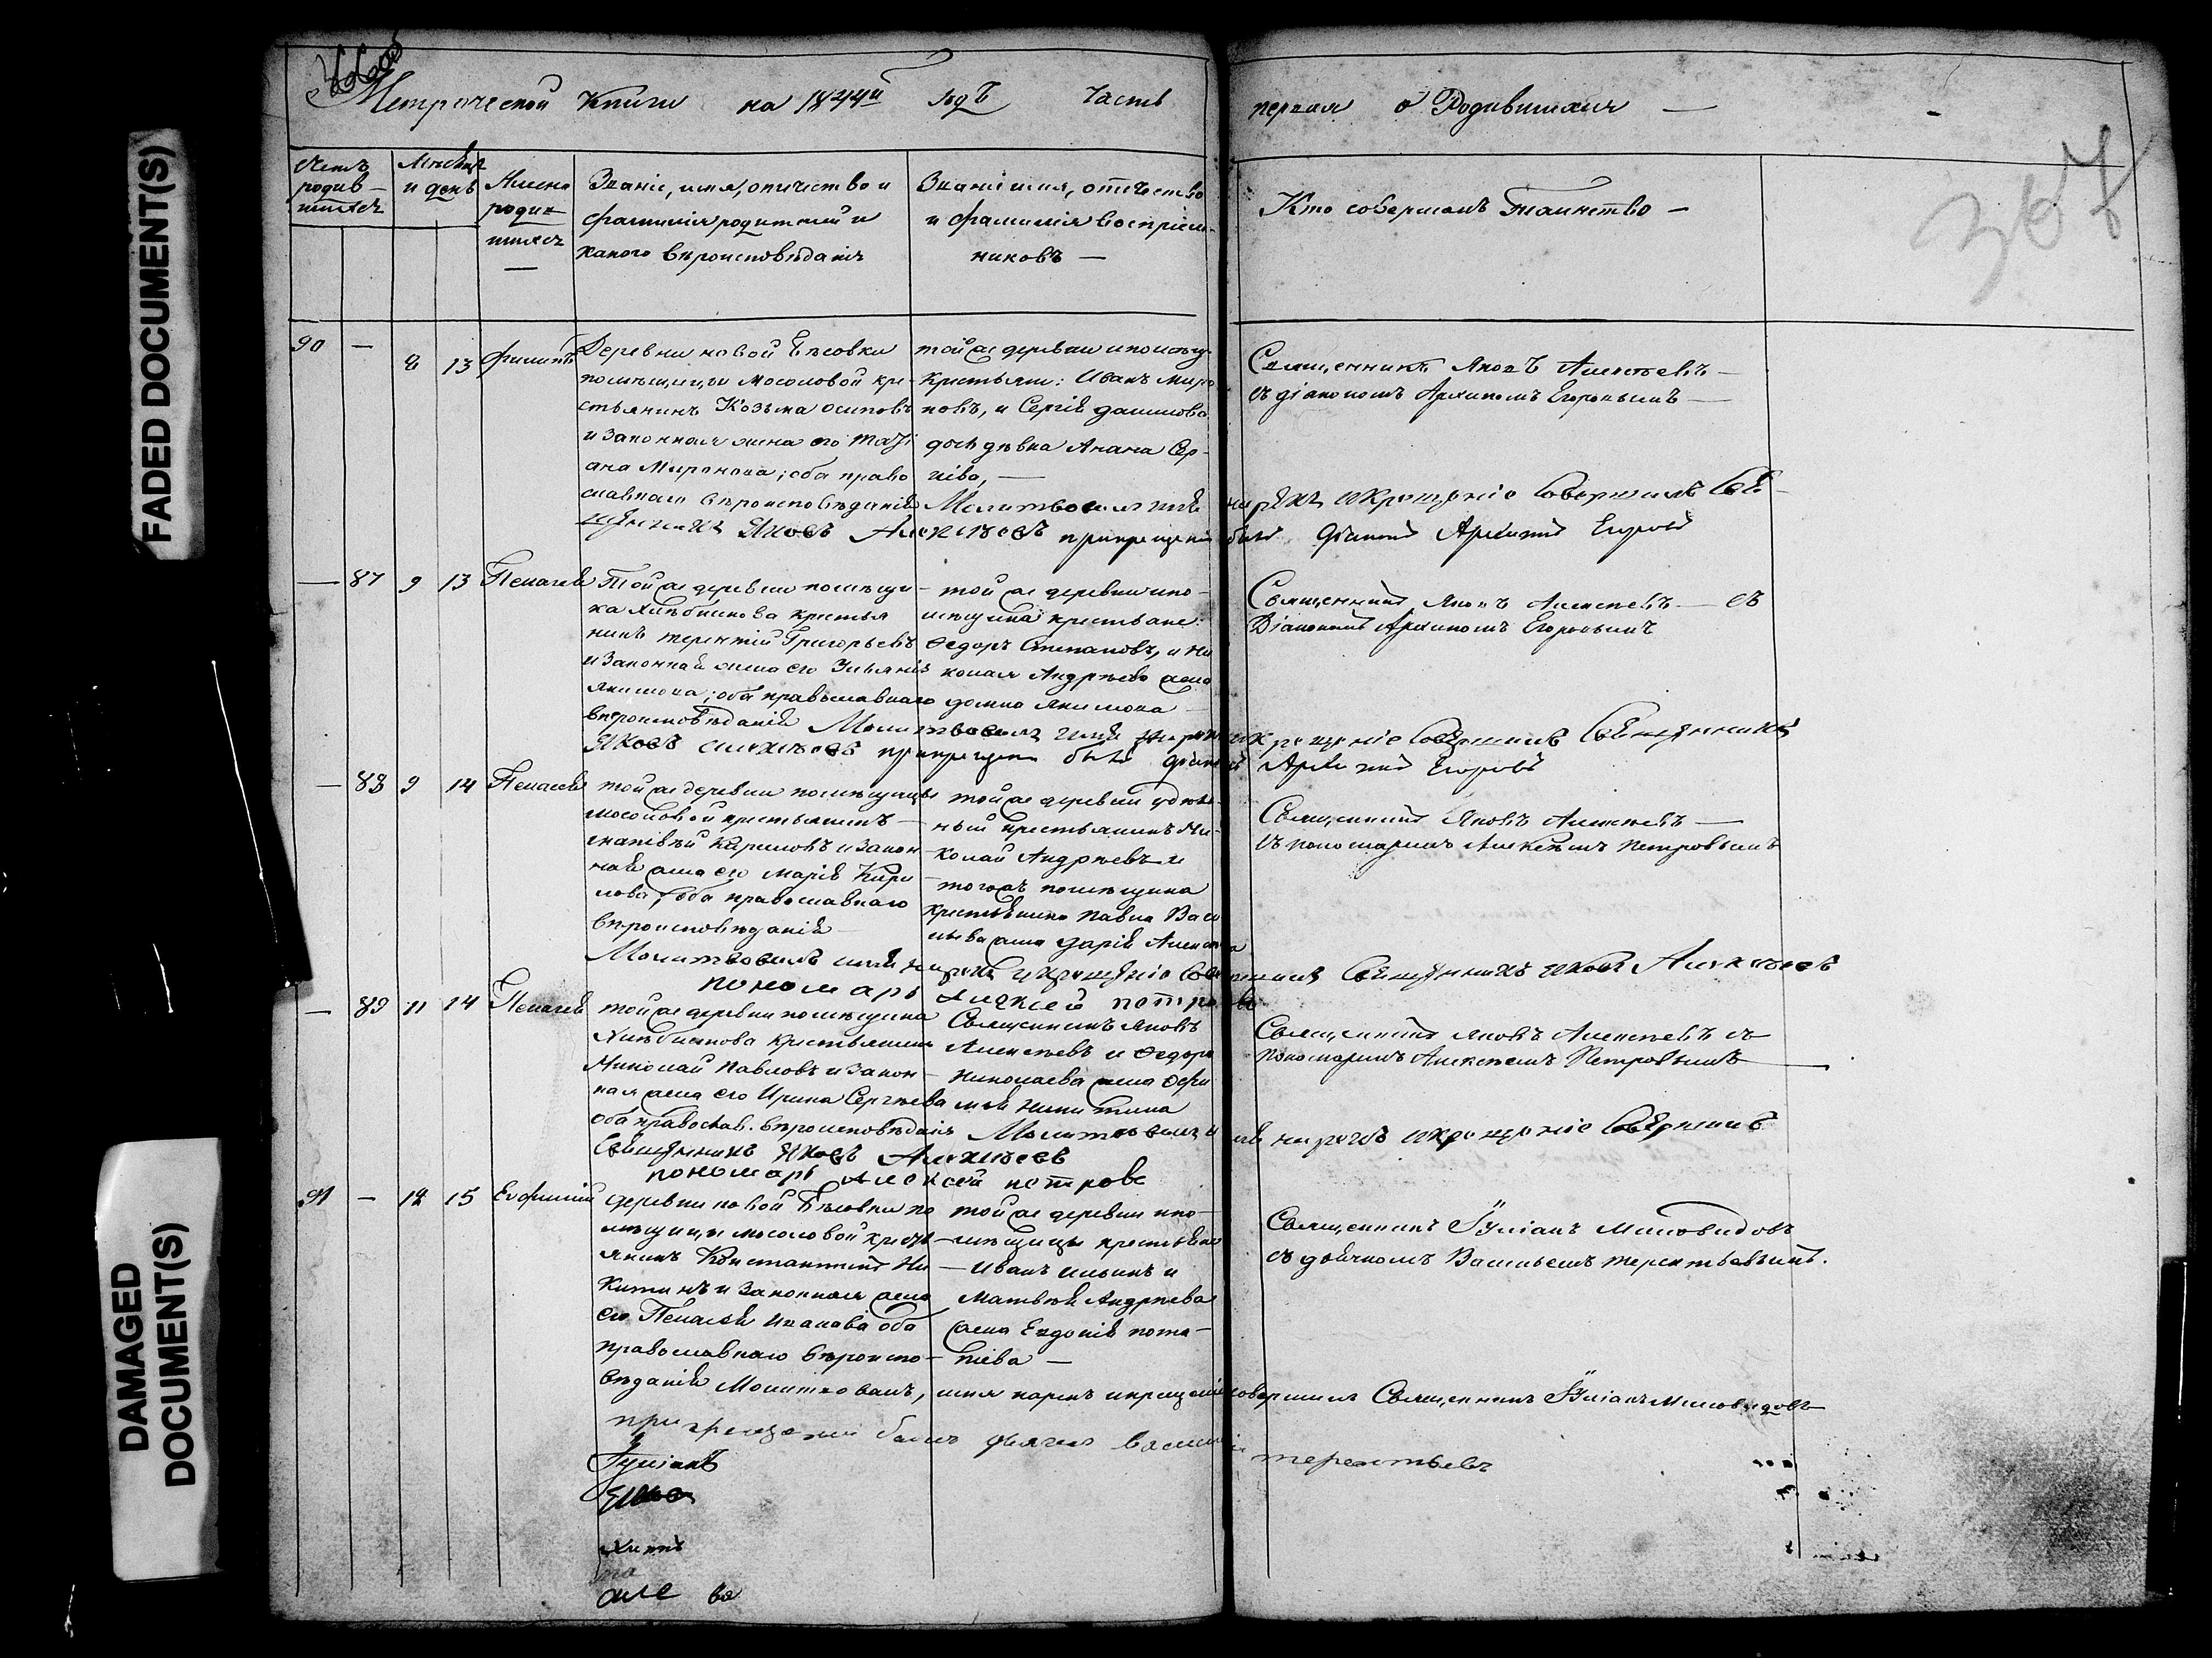 FADED DOCUMENT(S)
DAMAGED
DOCUMENT(S)
Метрической Книги на 1844й годъ Часть первая о Родившихся —
307
Счетъ
родив-
шихся
Мѣсяцъ
и день
Имена
родив-
шихся
Званіе, имя, отчество и
фамилія родителей и
какого вѣроисповѣданія
Званіе имя, отчество
и фамилія воспріем-
никовъ —
Кто совершалъ таинство —
90 — 8 13 Филипъ
Деревни новой
помѣщицы Мосоловой кре-
стьянинъ Козьма Осиповъ
и законная жена его Таті
ана Миронова; оба право
славнаго вѣроисповѣданія
той же деревни и помѣщ
крестьяне: Иванъ Миро
новъ, и Сергія Данилова
дочь дѣвка Анана Сер-
гіева, —
Священникъ Яковъ Алексѣевъ —
съ діакономъ Архипомъ Егоровымъ —
Молитвовалъ имя нарекъ и крещеніе совершилъ Свя-
щенникъ Яковъ Алексѣевъ при крещеніи былъ діаконъ Архипъ Егоровъ
— 87 9 13 Пелагея
Той же деревни помѣщи-
ка Хлѣбникова крестья
нинъ Терентій Григорьевъ
и законная жена его Ульянія
Якимова; оба православнаго
вѣроисповѣданія
той же деревни и по-
мѣщика крестьяне:
Федоръ Степановъ, и Ни
колая Андрѣева жена
Домна Якимова —
Священникъ Яковъ Алексѣевъ — съ
Діакономъ Архипомъ Егоровымъ
Молитвовалъ имя нарекъ и крещеніе совершилъ Священникъ
Яковъ Алексѣевъ при крещеніи былъ діаконъ Архипъ Егоровъ
— 88 9 14 Пелагея
той же деревни помѣщицы
Мосоловой крестьянинъ —
Игнатій Кириловъ и закон
ная жена его Марія Кири
лова, оба православнаго
вѣроисповѣданія —
той же деревни удѣль-
ный крестьянинъ Ни-
колай Андрѣевъ и
того жъ помѣщика
крестьянина Павла Васи
льева жена Дарія Алексѣева
Священникъ Яковъ Алексѣевъ —
съ пономаремъ Алексѣемъ Петровымъ
Молитвовалъ имя нарекъ и крещеніе совершилъ Священникъ Яковъ Алексѣевъ
пономарь Алексей Петровъ
— 89 11 14 Пелагея
той же деревни помѣщика
Хлѣбникова крестьянинъ
Николай Павловъ и закон-
ная жена его Ирина Сергѣева
оба православ. вѣроисповѣданія
Священникъ Яковъ
Алексѣевъ и Федора
Николаева жена Офи
мія Никитина
Священникъ Яковъ Алексѣевъ съ
пономаремъ Алексѣемъ Петровымъ —
Молитвовалъ имя нарекъ и крещеніе совершилъ
Священникъ Яковъ Алексѣевъ
пономарь Алексей Петровъ
91 — 12 15 Евфимій
деревни новой по
мѣщицы Мосоловой кресть-
янинъ Константинъ Ни-
китинъ и законная жена
его Пелагея Иванова оба
православнаго вѣроиспо-
вѣданія
той же деревни и по-
мѣщицы крестьяне
Иванъ Ильинъ и
Матвѣя Андрѣева
жена Евдокія Пота-
піева —
Священникъ Іуліанъ Миловидовъ
съ дьячкомъ Васильемъ Терентьевымъ.
Молитвовалъ, имя нарекъ и крещеніе совершилъ Священникъ Іуліанъ Миловидовъ
при крещеніи былъ дьячекъ Василій Терентьевъ
Іуліанъ